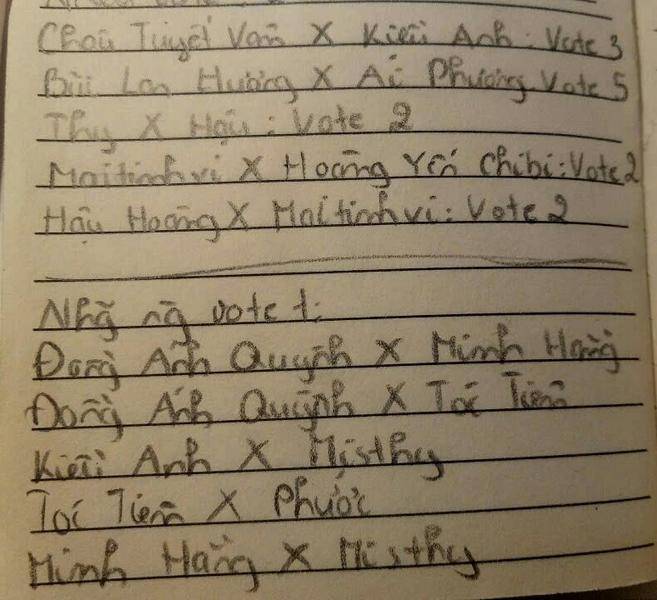 Châu Tuyết Vân X Kiều Anh: Vote 3
Bùi Lan Hương X Ái Phương Vote 5
Thy X Hậu: Vote 2
Maitinhvi X Hoàng Yến Chibi: Vote 2
Hậu Hoàng X Maitinhvi: Vote 2
vote 1:
Đồng Ánh Quỳnh X Minh Hằng
Đồng Ánh Quỳnh X Tóc Tiên
Kiều Anh X Misthy
Tóc Tiên X Phước
Minh Hằng X Misthy